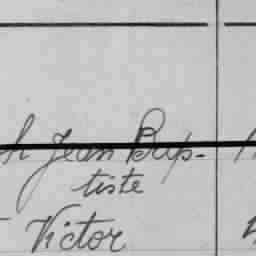 h Jean Bap-
tiste
Victor